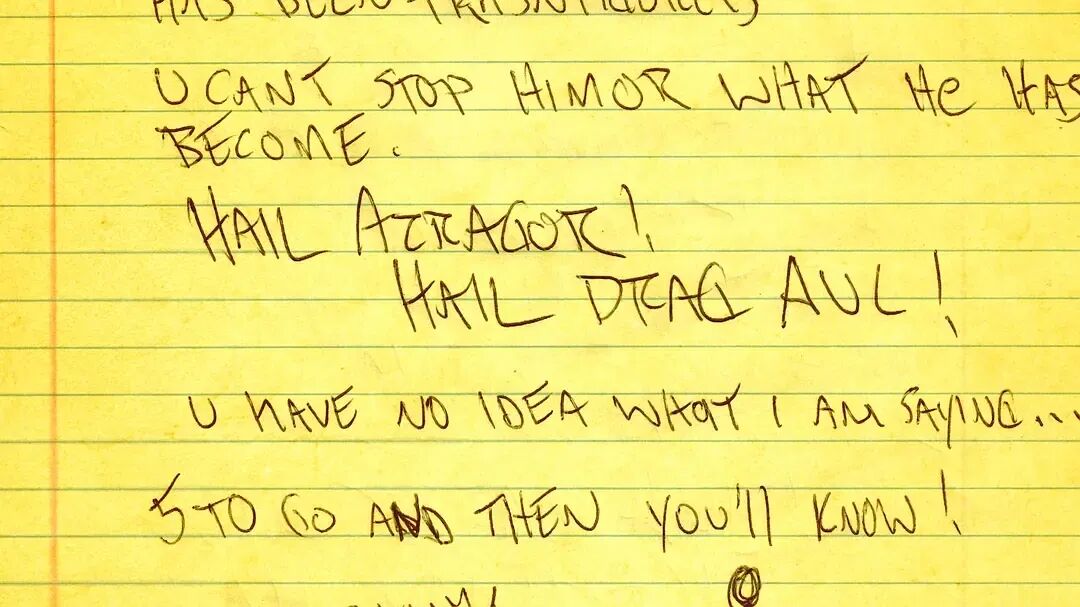 HAS BEEN
U CANT STOP HIM OR WHAT HE HAS
BECOME.
HAIL ARRAGOR!
HAIL DRAG AUL!
U HAVE NO IDEA WHAT I AM SAYING...
5 TO GO AND THEN YOU'll KNOW!